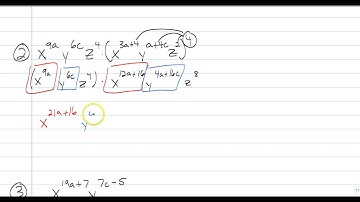 ② x^9a y^6c z^4 · (x^3a+4 y^a+4c z^2)^4
(x^9a y^6c z^4) · x^12a+16 y^4a+16c z^8
x^21a+16 y^6
③ x^19a+7 y^7c-5